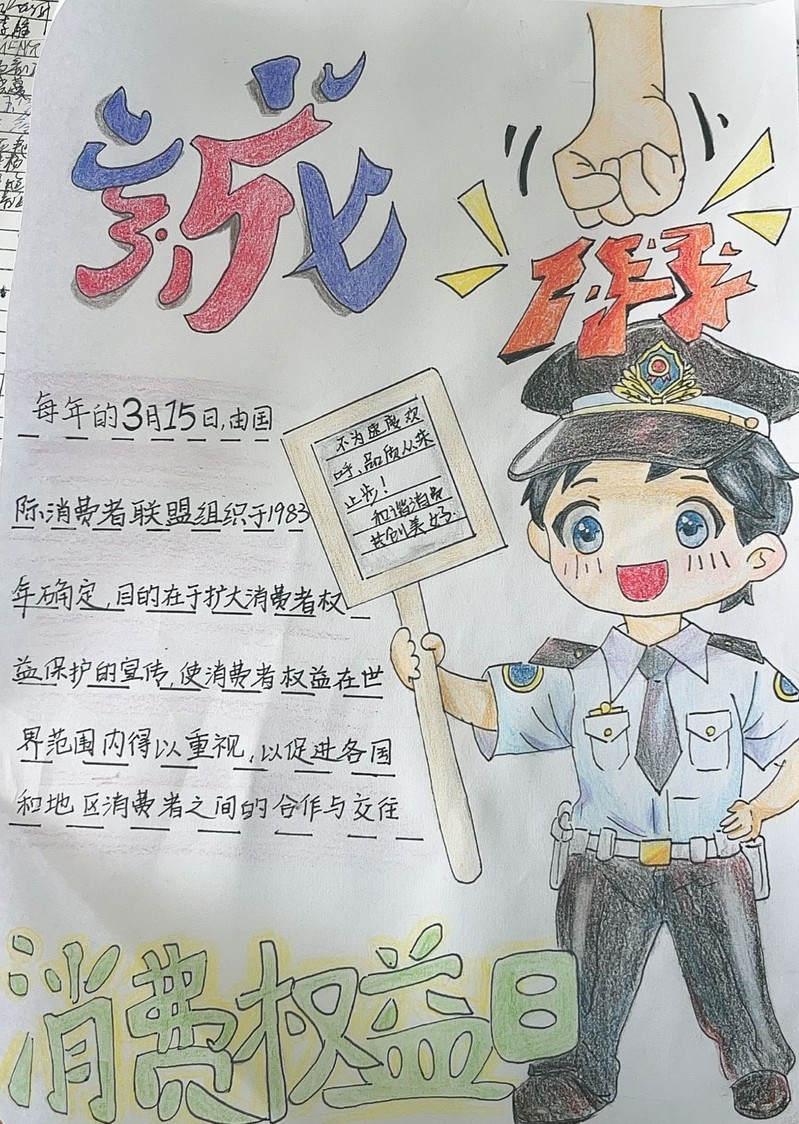 3.15
假
每年的3月15日,由国
际消费者联盟组织于1983
年确定,目的在于扩大消费者权
益保护的宣传,使消费者权益在世
界范围内得以重视,以促进各国
和地区消费者之间的合作与交往
不为速度欢
呼,品质从来
止步!
和谐消费
共创美好.
消费权益日